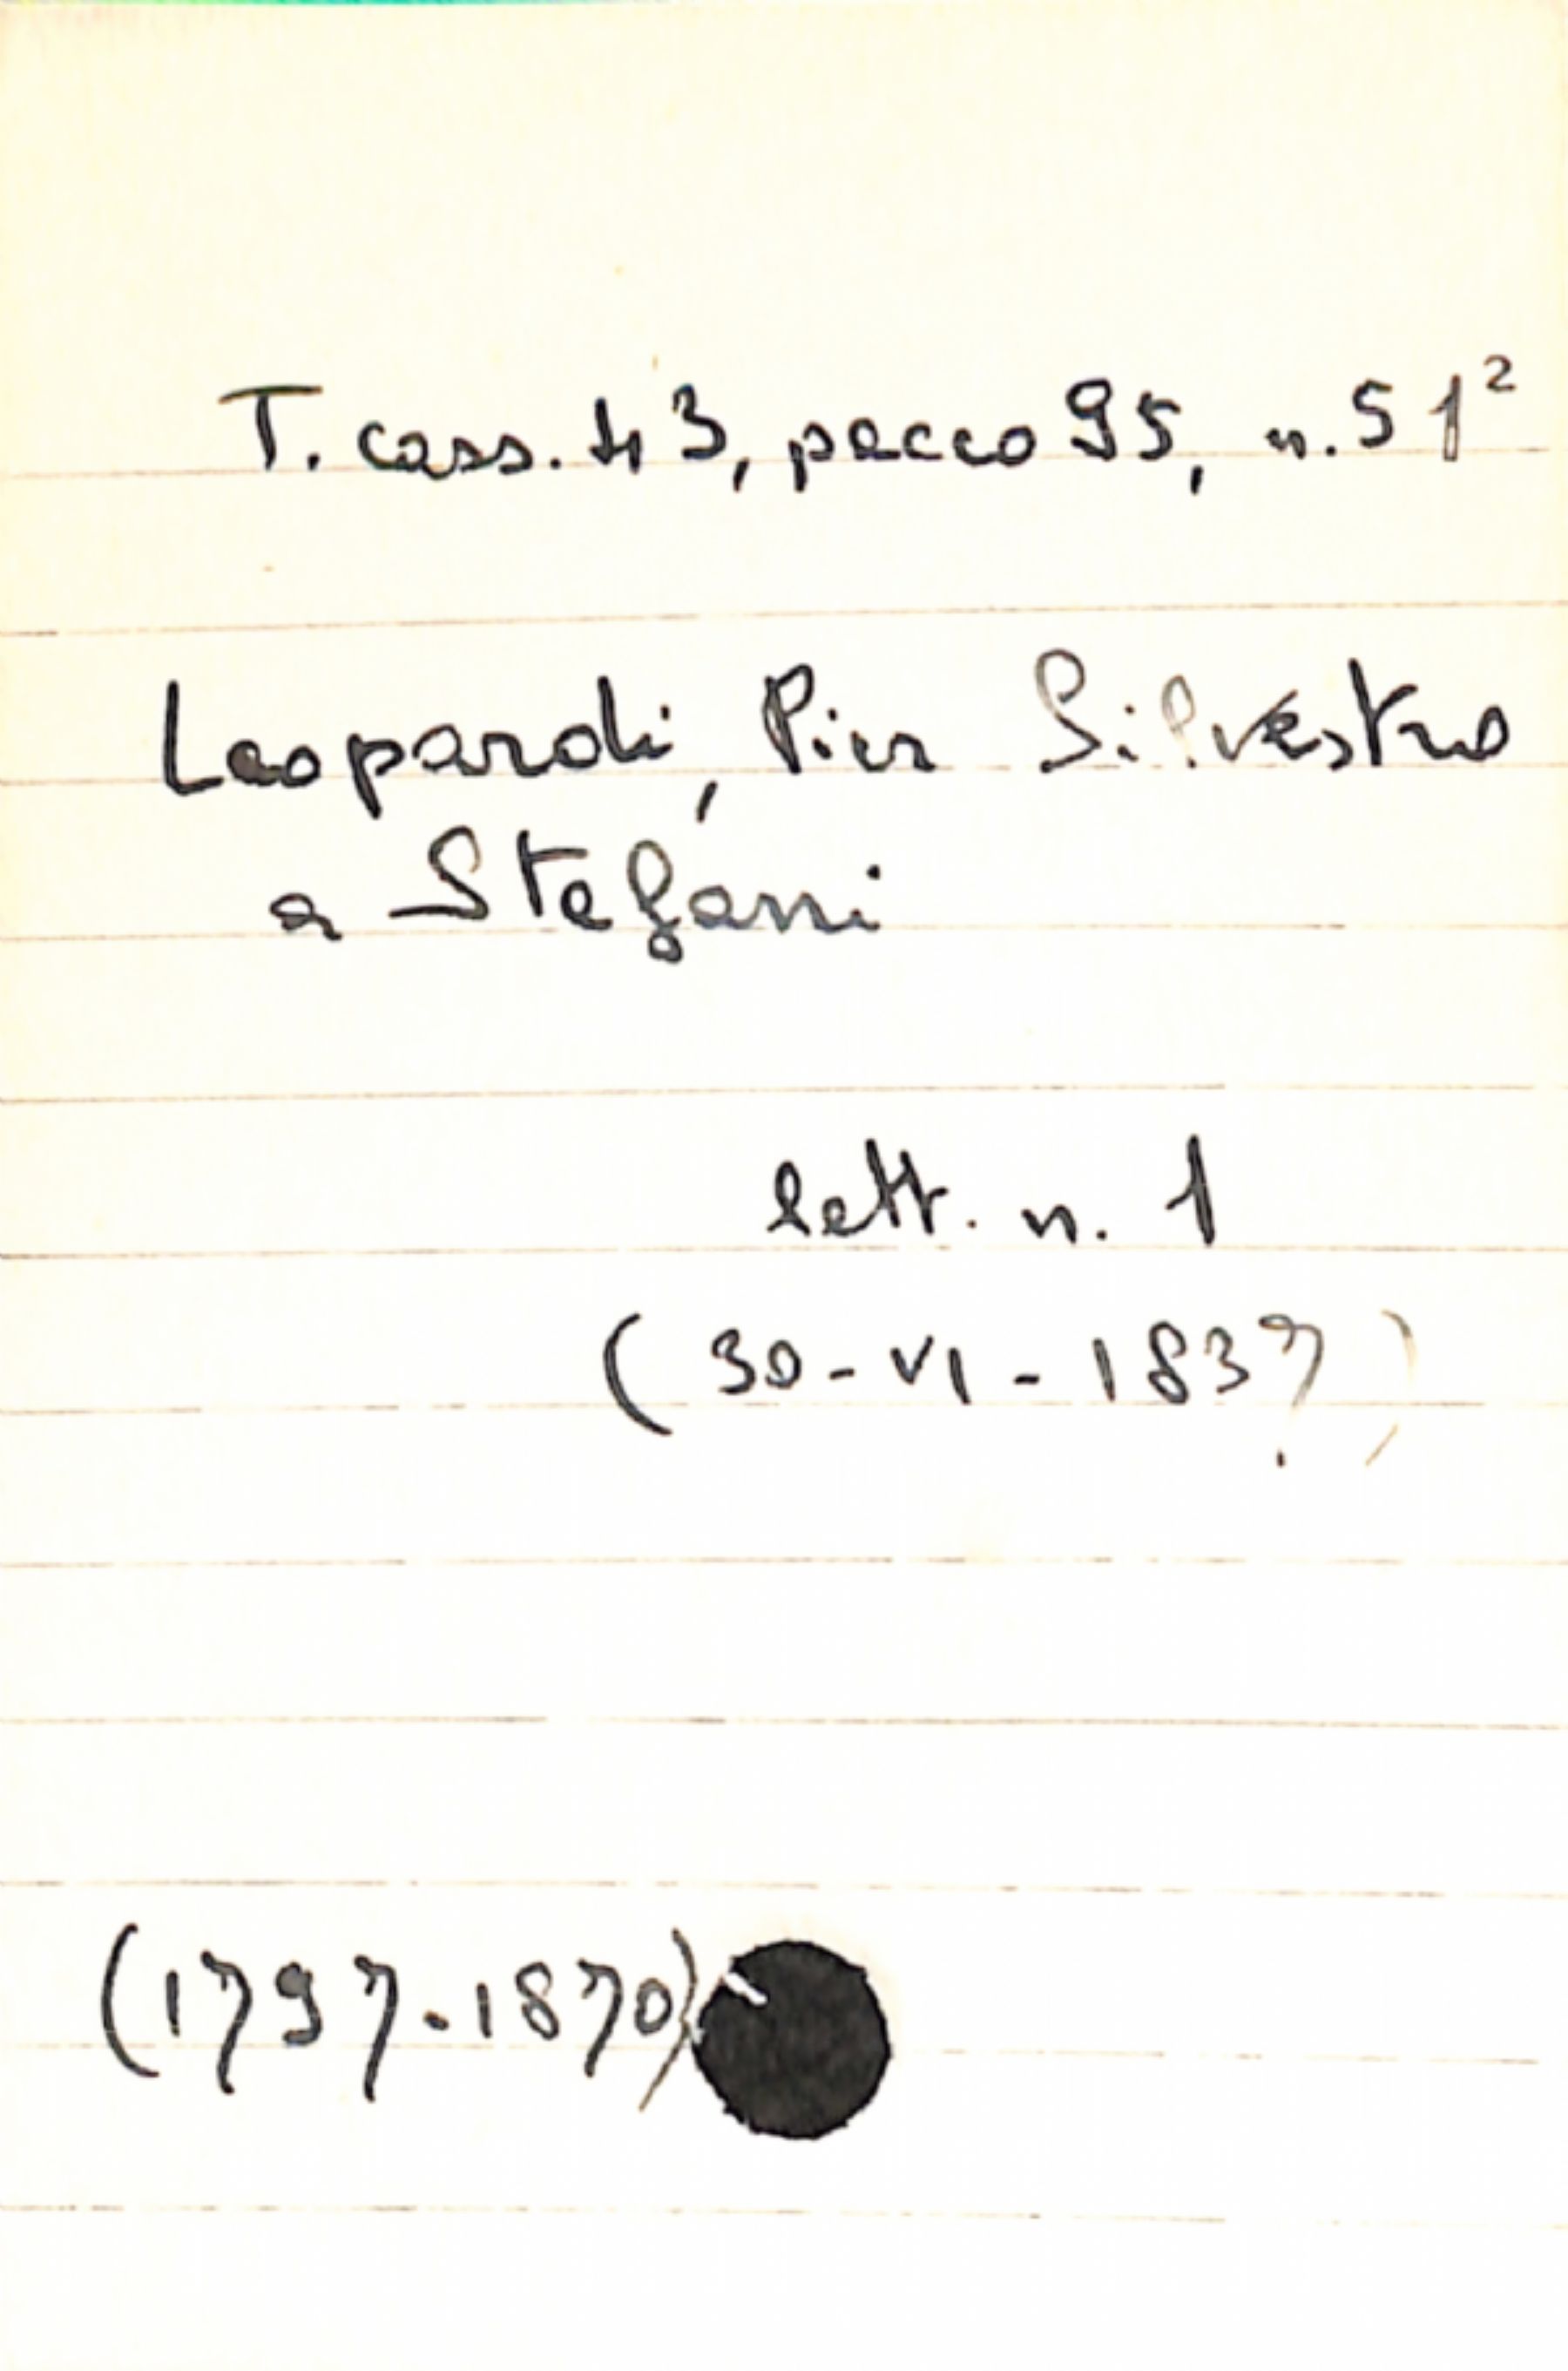 T. cass. 43, pacco 95, n. 51²
Leopardi, Pier Silvestro
a Stefani
lett. n. 1
(30-VI-1837)
(1797-1870)